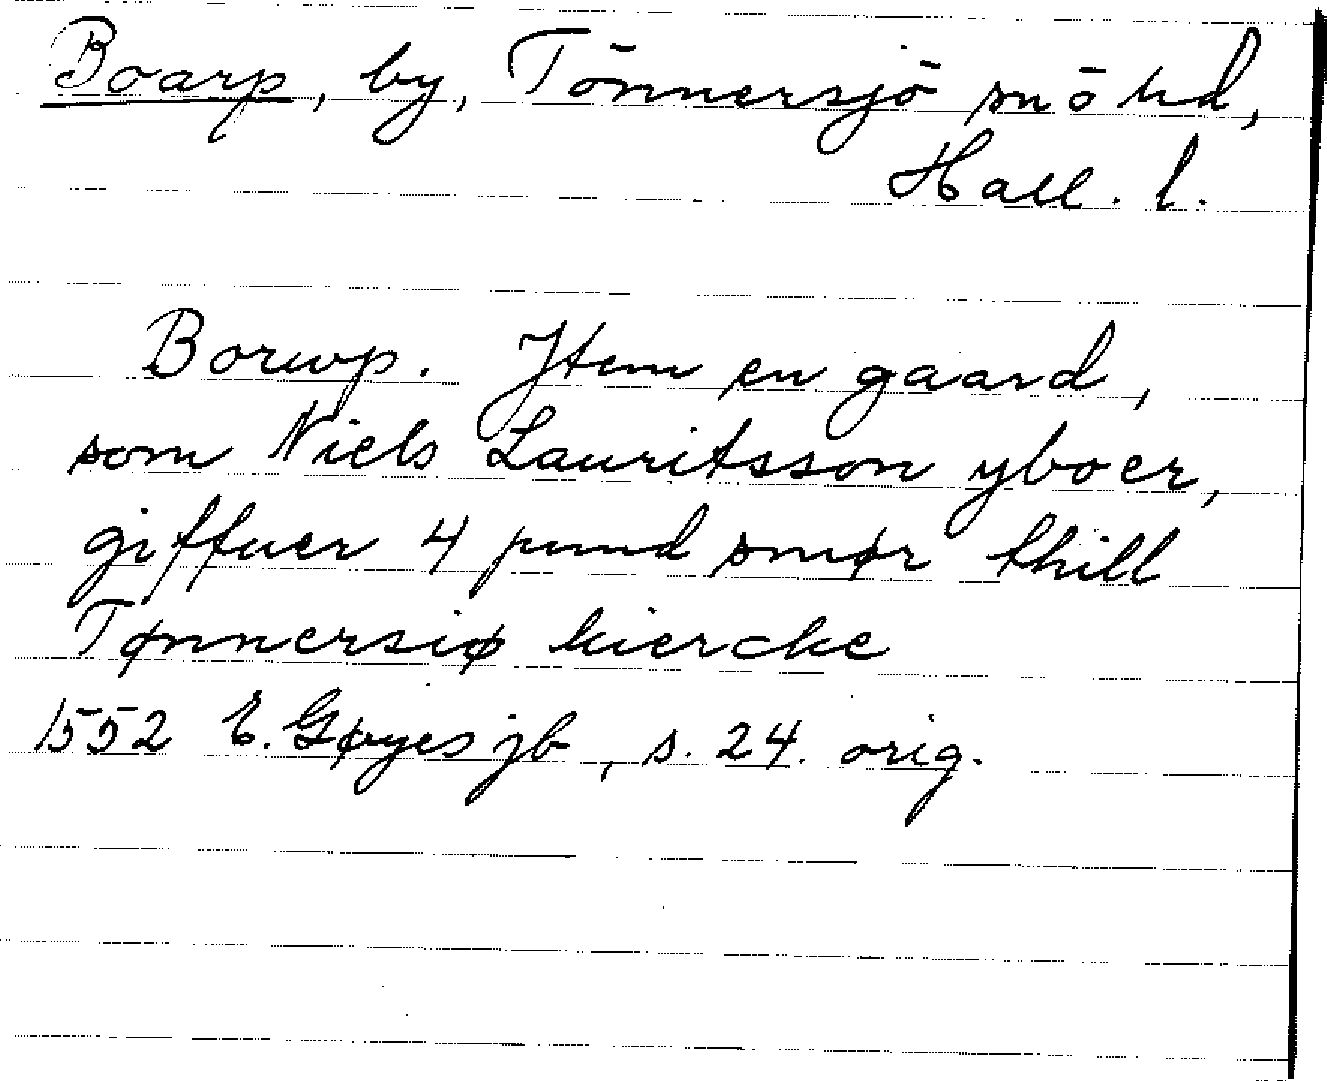 Boarp, by, Tönnersjö sn ö hd,
Hall. l.
Borup. Jtem en gaard,
som Niels Lauritsson yboer,
giffuer 4 pund smør thill
Tønnersiø kiercke
1552 E. Gøyes jb, s. 24. orig.